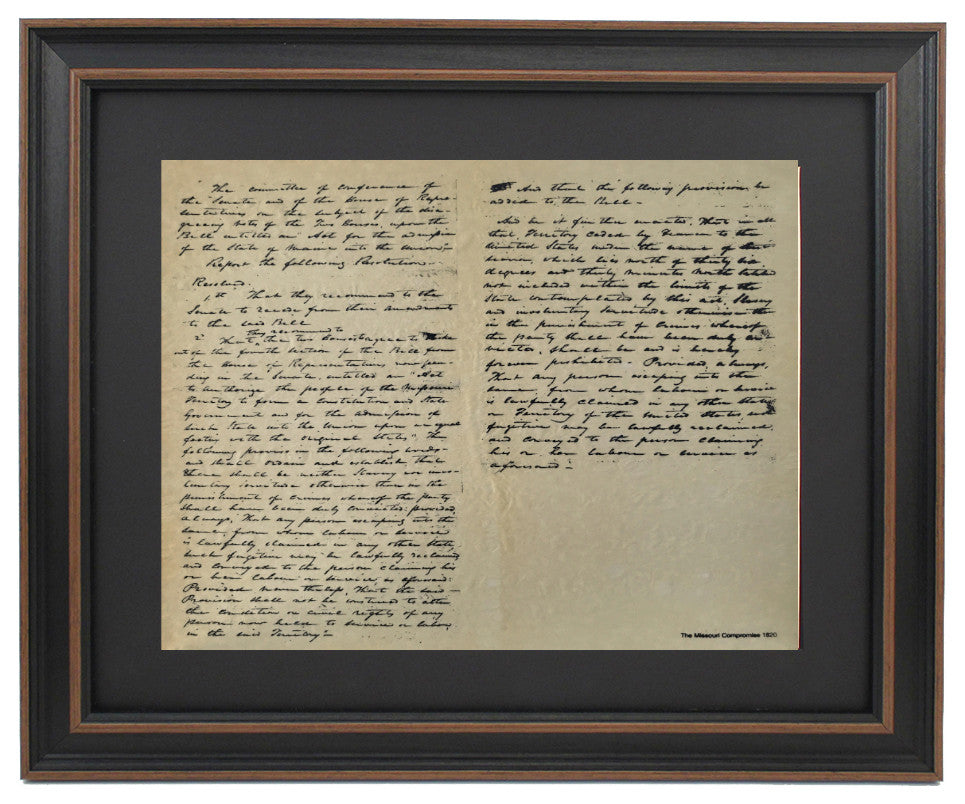 The committee of Conference of
the Senate and of the House of Repre-
sentatives on the subject of the disa-
greeing votes of the Two Houses, upon the
Bill entitled an "Act for the admission
of the State of Maine into the Union"
Report the following Resolution.
Resolved.
1st That they recommend to the
Senate to recede from their amendments
to the said Bill
they recommend to
2 That the two Houses agree to strike
out of the fourth section of the Bill from
the House of Representatives now pen-
ding in the Senate, entitled an "Act
to authorize the people of the Missouri
Territory to form a Constitution and State
Government and for the admission of
such State into the Union upon an equal
footing with the original States", the
following proviso in the following words-
and shall ordain and establish that
there shall be neither Slavery nor invo-
luntary servitude otherwise than in the
punishment of crimes whereof the party
shall have been duly convicted: provided,
always, That any person escaping into the
same, from whom labour or service
is lawfully claimed in any other State,
such fugitive may be lawfully reclaimed
and conveyed to the person claiming his
or her labour or service as aforesaid:
Provided nevertheless, That the said
Provision shall not be construed to alter
the condition or civil rights of any
person now held to service or labour
in the said Territory-
And that the following provision be
added to the Bill-
And be it further enacted, That in all
that Territory ceded by France to the
United States under the name of
which lies north of thirty six
degrees and thirty minutes north
not included within the limits of the
State contemplated by this act, Slavery
and involuntary servitude otherwise than
in the punishment of crimes whereof
the party shall have been duly con-
victed, shall be and is hereby
forever prohibited. Provided, always,
That any person escaping into the
same, from whom labour or service
is lawfully claimed in any other State
or Territory of the United States, such
fugitive may be lawfully reclaimed,
and conveyed to the person claiming
his or her labour or service as
aforesaid-
The Missouri Compromise 1820